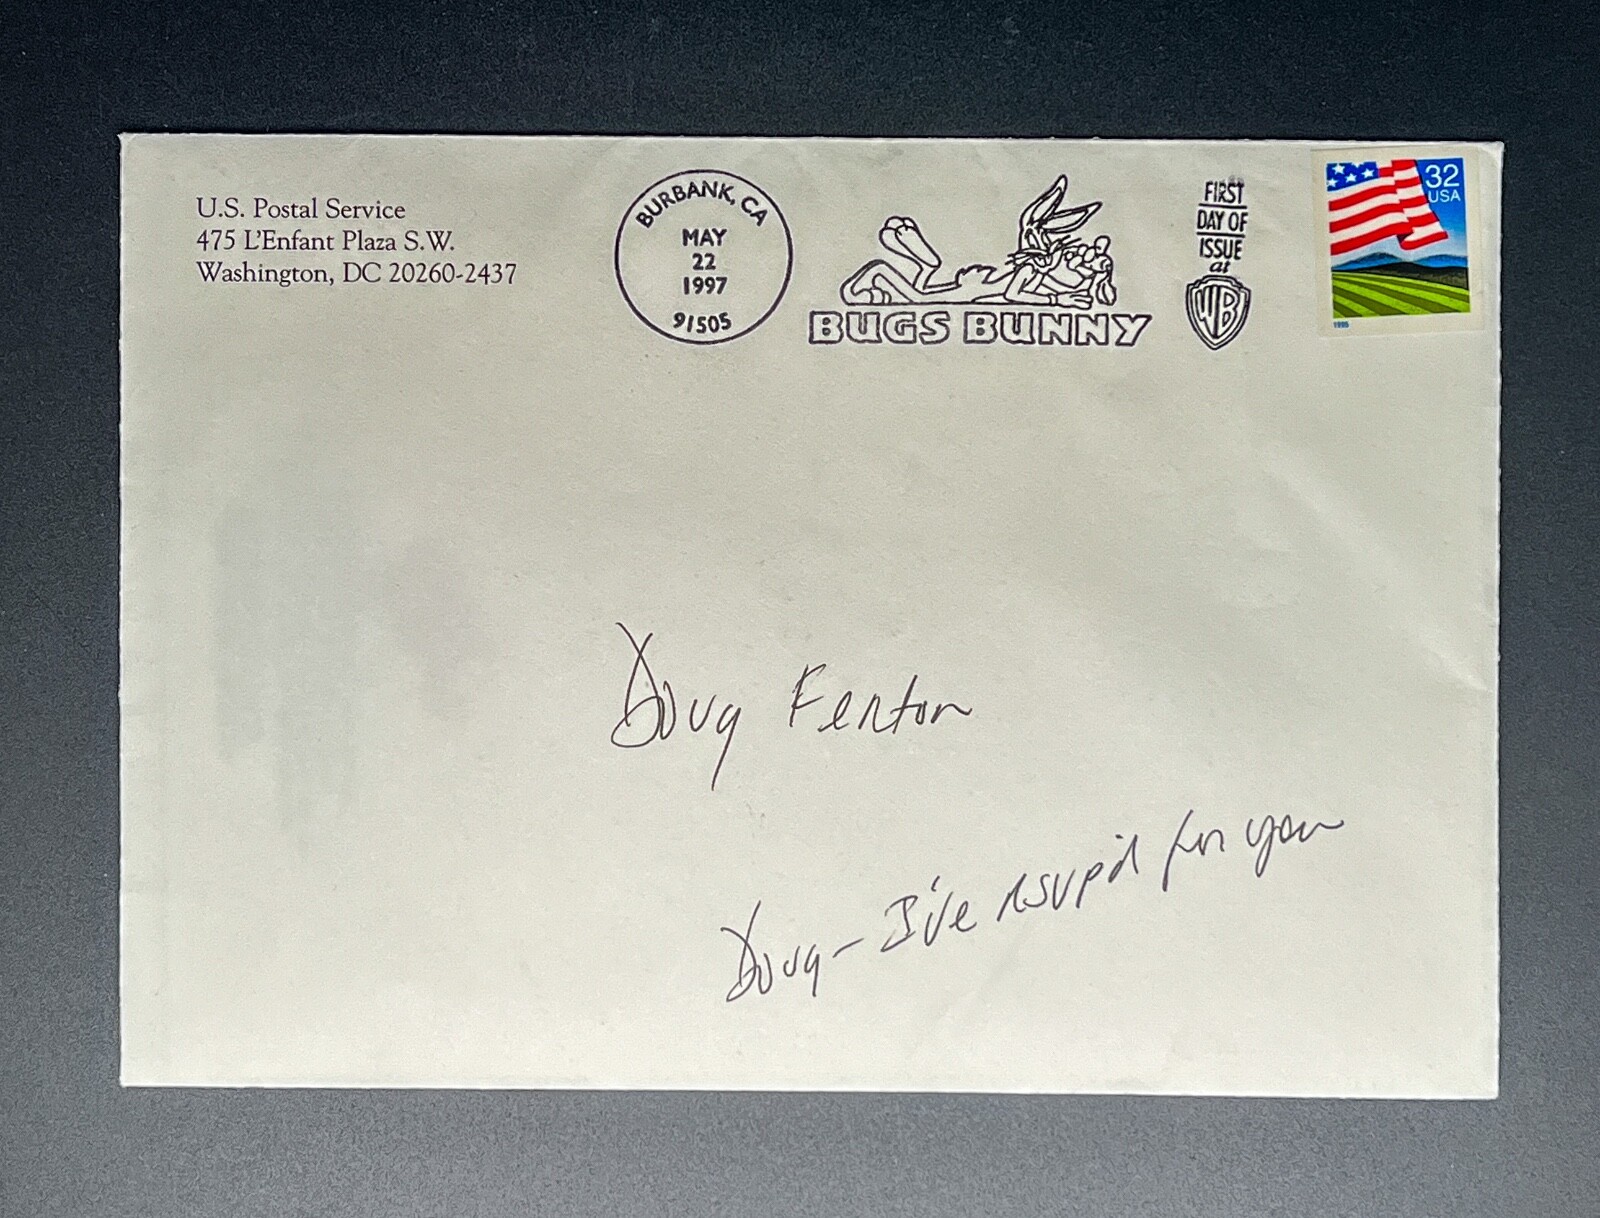 U.S. Postal Service
475 L'Enfant Plaza S.W.
Washington, DC 20260-2437
BURBANK, CA
MAY
22
1997
91505
BUGS BUNNY
FIRST
DAY OF
ISSUE
at
WB
32
USA
1995
Doug Fenton
Doug - I've rsvp'd for you